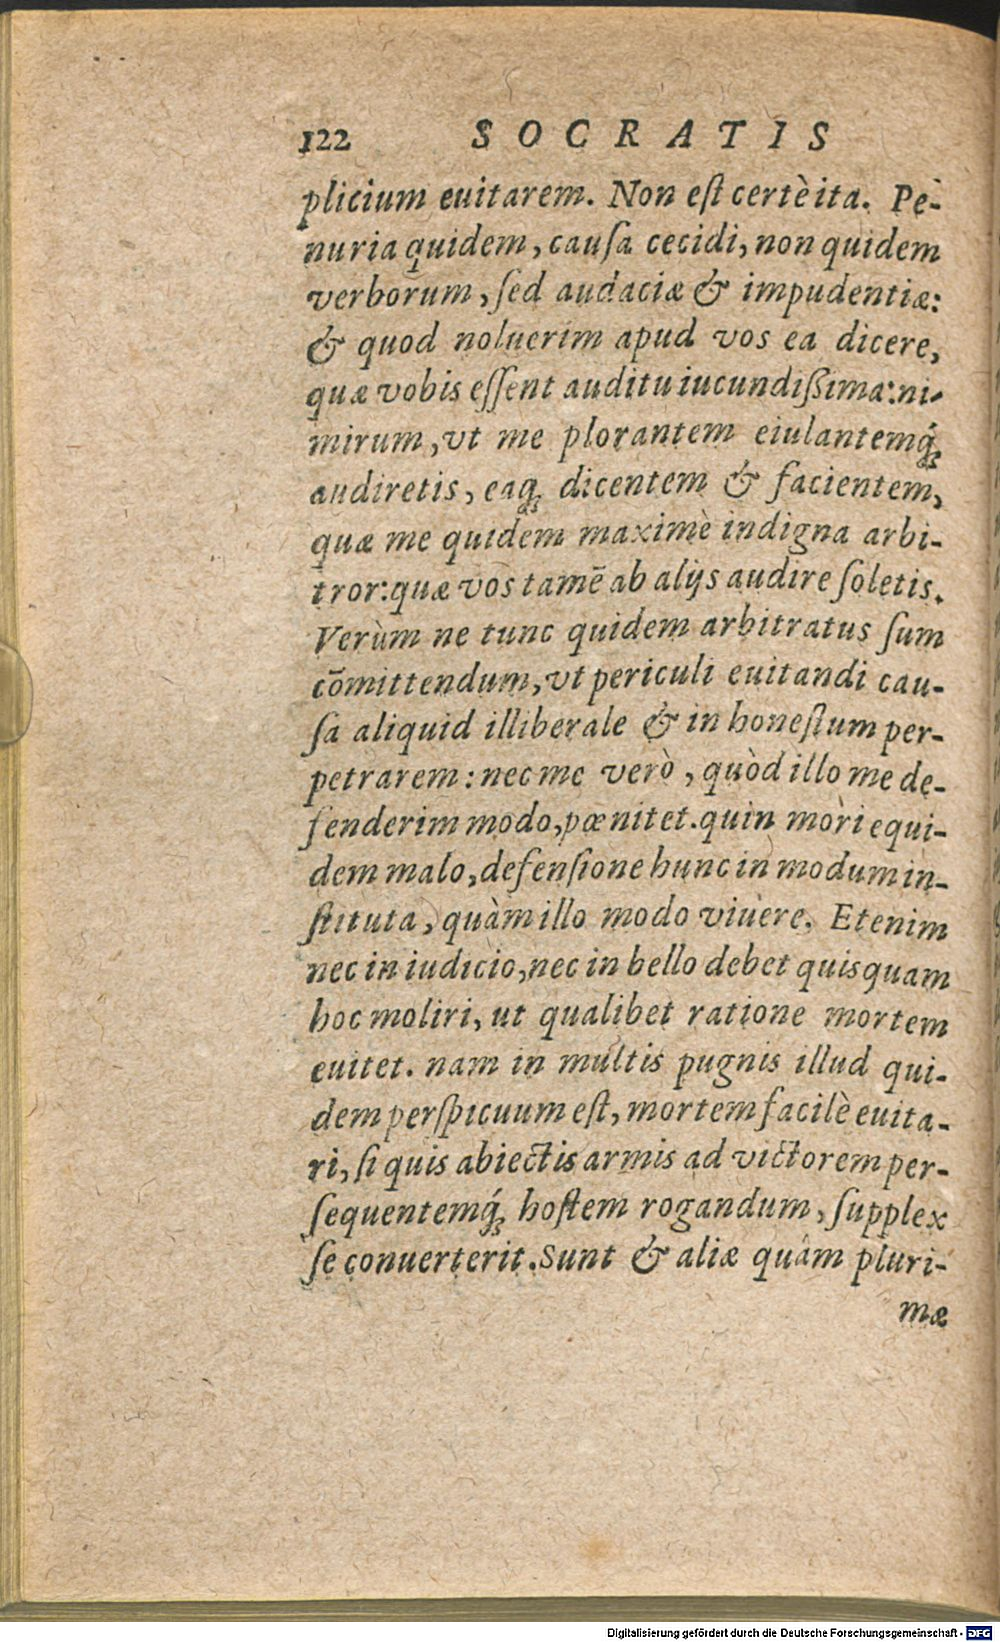 122 SOCRATIS
plicium euitarem. Non eſt certè ita. Pe-
nuria quidem, cauſa cecidi, non quidem
verborum, ſed audaciæ & impudentiæ:
& quod noluerim apud vos ea dicere,
quæ vobis eſſent auditu iucundiſsima: ni-
mirum, vt me plorantem eiulantemq́;
audiretis, eaq; dicentem & facientem,
quæ me quidem maximè indigna arbi-
tror: quæ vos tamē ab alijs audire ſoletis.
Verùm ne tunc quidem arbitratus ſum
cōmittendum, vt periculi euitandi cau-
ſa aliquid illiberale & in honeſtum per-
petrarem: nec me verò, quòd illo me de-
fenderim modo, pœnitet. quin mori equi-
dem malo, defenſione hunc in modum in-
ſtituta, quàm illo modo viuere. Etenim
nec in iudicio, nec in bello debet quisquam
hoc moliri, ut qualibet ratione mortem
euitet. nam in multis pugnis illud qui-
dem perſpicuum eſt, mortem facilè euita-
ri, ſi quis abiectis armis ad victorem per-
ſequentemq́; hoſtem rogandum, ſupplex
ſe conuerterit. Sunt & aliæ quàm pluri-
mæ
Digitalisierung gefördert durch die Deutsche Forschungsgemeinschaft - DFG